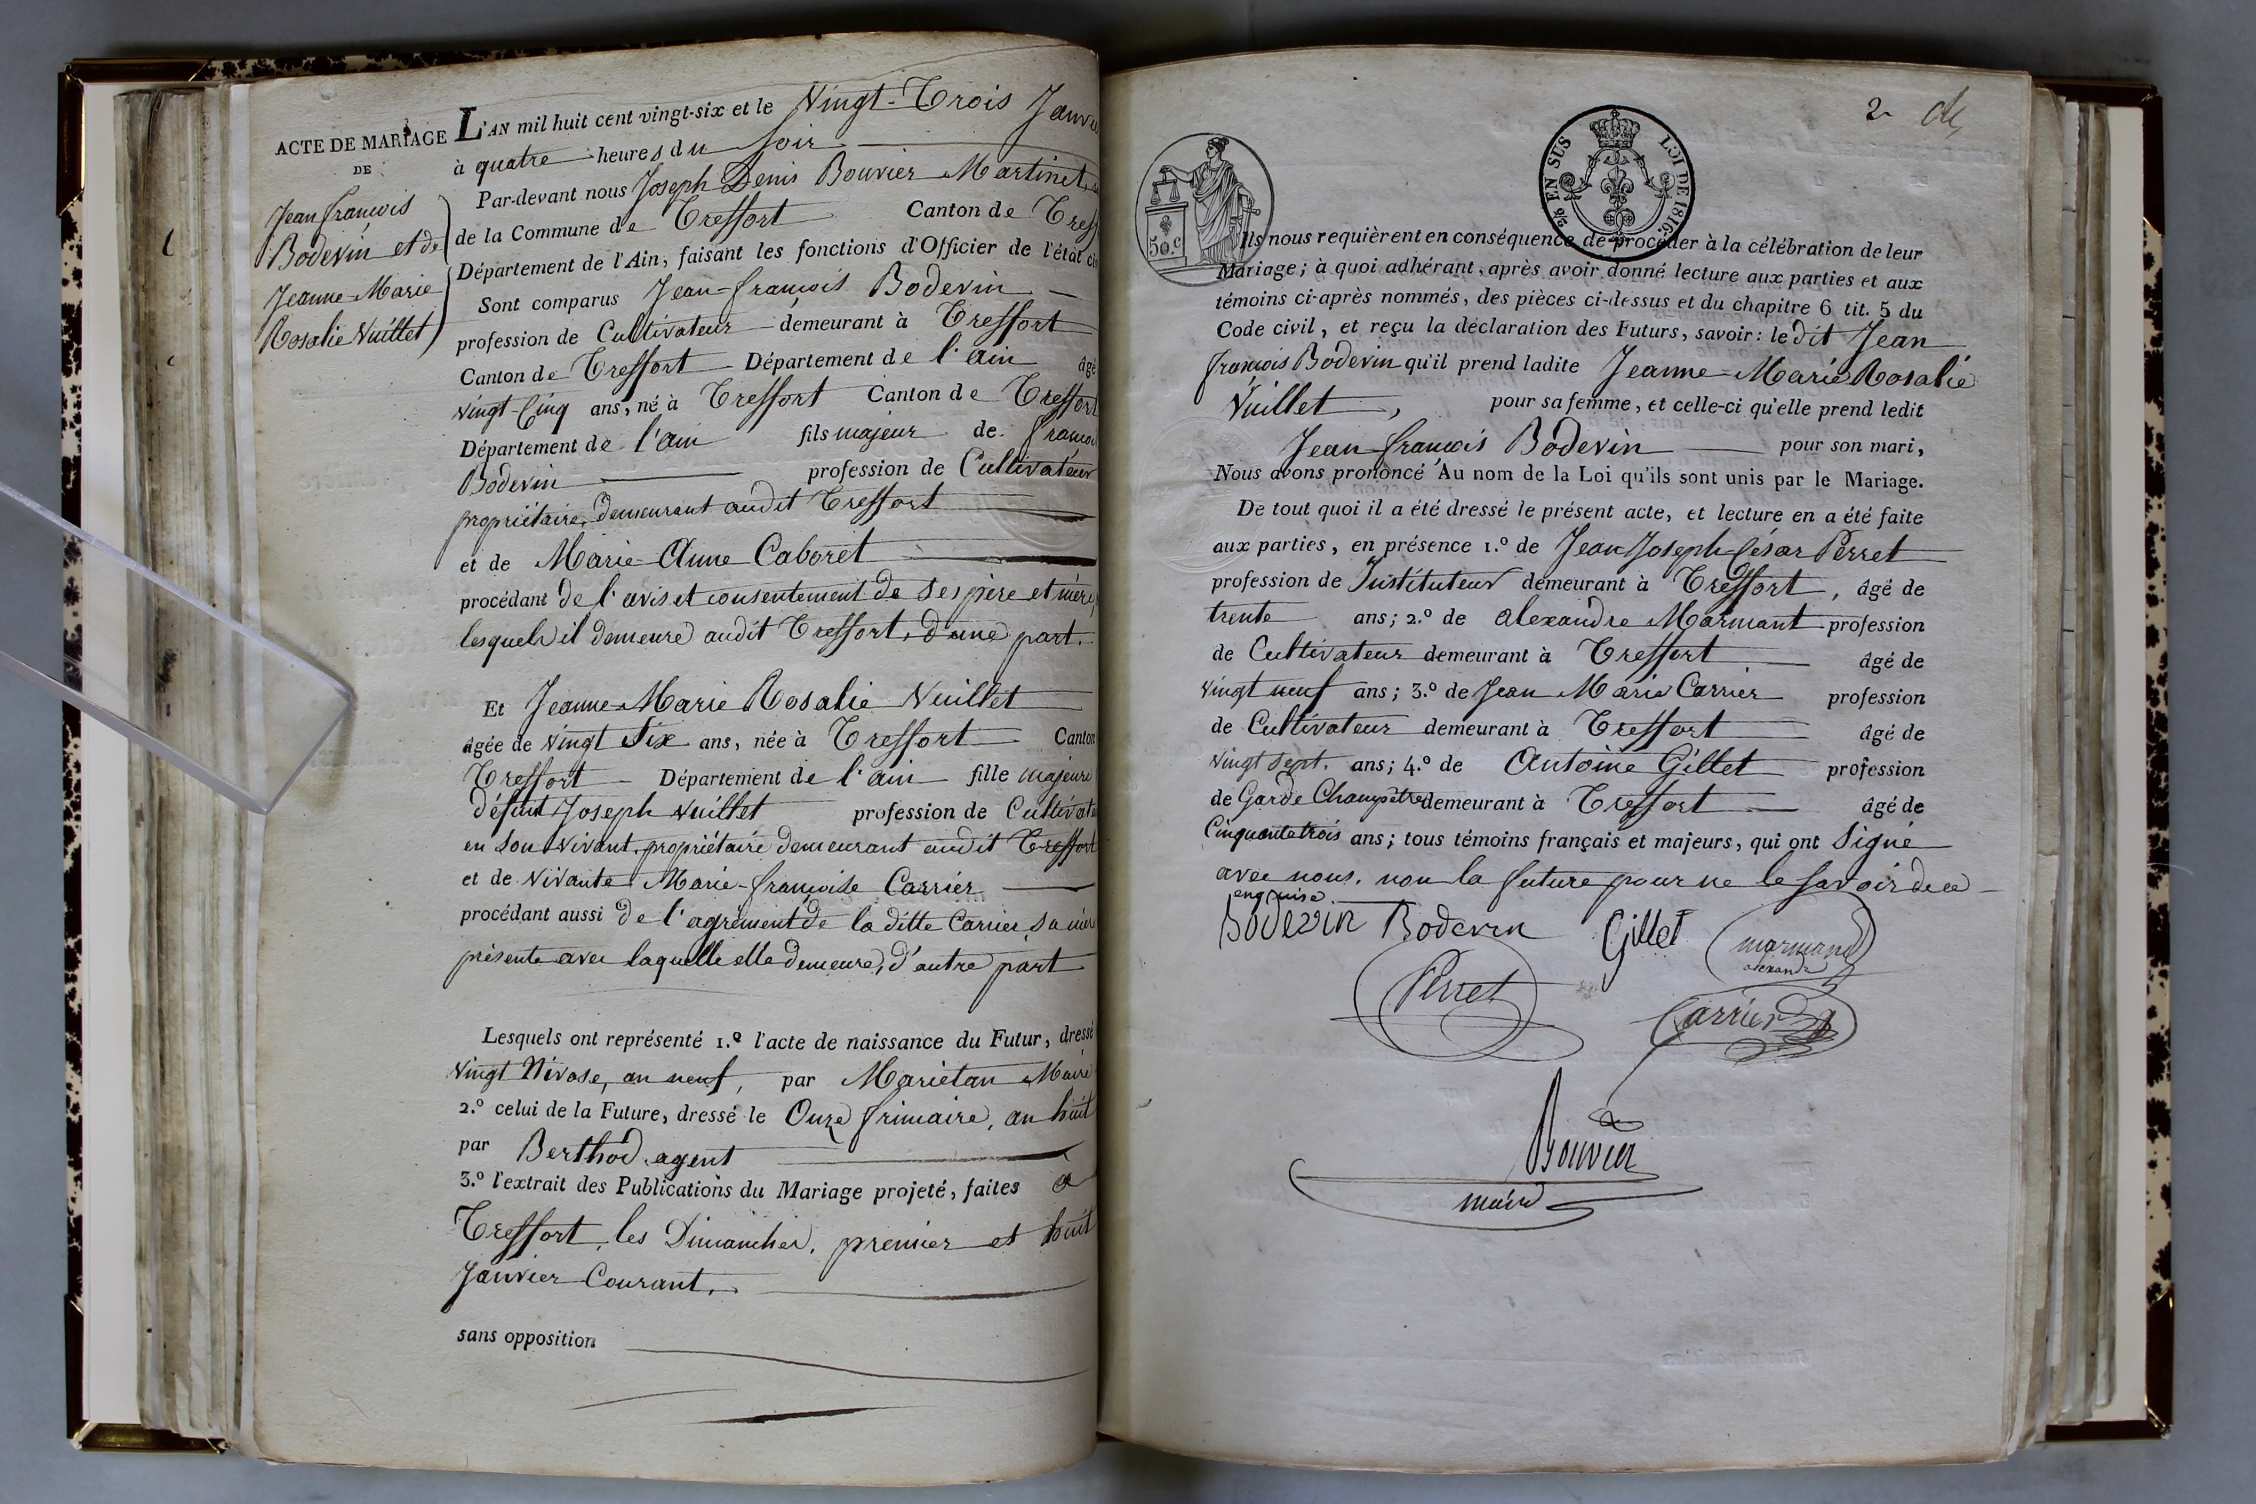 ACTE DE MARIAGE
DE
Jean françois
Bodevin et de
Jeanne-Marie
Rosalie Vuillet
L'AN mil huit cent vingt-six et le Vingt-Trois Janvi
à quatre heures du Soir
Par-devant nous Joseph Denis Bouvier Martinet
de la Commune de Treffort Canton de Treff
Département de l'Ain, faisant les fonctions d'Officier de l'état ci
Sont comparus Jean-françois Bodevin
profession de Cultivateur demeurant à Treffort
Canton de Treffort Département de l'ain âgé
Vingt-Cinq ans, né à Treffort Canton de Treffort
Département de l'ain fils majeur de françoi
Bodevin profession de Cultivateur
propriétaire, demeurant audit Treffort
et de Marie-Anne Caboret
procédant de l'avis et consentement de ses père et mère,
lesquels il demeure audit Treffort, d'une part.
Et Jeanne-Marie Rosalie Vuillet
âgée de Vingt Six ans, née à Treffort Canton
Treffort Département de l'ain fille majeure
défunt Joseph Vuillet profession de Cultivate
en son vivant, propriétaire demeurant audit Treffort
et de vivante Marie-françoise Carrier
procédant aussi de l'agrément de la ditte Carrier, sa mère
présente avec laquelle elle demeure, d'autre part
Lesquels ont représenté 1.º l'acte de naissance du Futur, dressé
Vingt Nivose, an neuf, par Mariétan Maire
2.º celui de la Future, dressé le Onze frimaire, an huit
par Berthod agent
3.º l'extrait des Publications du Mariage projeté, faites a
Treffort, les Dimanches, premier et huit
Janvier Courant.
sans opposition
2
50.c
EN SUS
LOI DE 1816.
Ils nous requièrent en conséquence de procéder à la célébration de leur
Mariage; à quoi adhérant, après avoir donné lecture aux parties et aux
témoins ci-après nommés, des pièces ci-dessus et du chapitre 6 tit. 5 du
Code civil, et reçu la déclaration des Futurs, savoir: le dit Jean
françois Bodevin qu'il prend ladite Jeanne-Marie Rosalie
Vuillet, pour sa femme, et celle-ci qu'elle prend ledit
Jean françois Bodevin pour son mari,
Nous avons prononcé Au nom de la Loi qu'ils sont unis par le Mariage.
De tout quoi il a été dressé le présent acte, et lecture en a été faite
aux parties, en présence 1.º de Jean Joseph César Perret
profession de Instituteur demeurant à Treffort, âgé de
trente ans; 2.º de alexandre Marmant profession
de Cultivateur demeurant à Treffort âgé de
Vingt neuf ans; 3.º de Jean Marie Carrier profession
de Cultivateur demeurant à Treffort âgé de
Vingt sept. ans; 4.º de Antoine Gillet profession
de Garde Champêtre demeurant à Treffort âgé de
Cinquante trois ans; tous témoins français et majeurs, qui ont Signé
avec nous. non la future pour ne le savoir de ce
enquise.
Bodevin Bodevin Gillet marmand
alexandre
Perret Carrier
Bouvier
maire